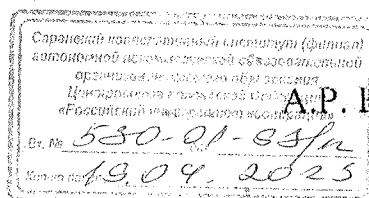 Саранский кооперативный институт (филиал)
автономной некоммерческой образовательной
организации высшего образования
Центросоюза Российской Федерации
«Российский университет кооперации»
А.Р.
Вх. №
19.04.2023